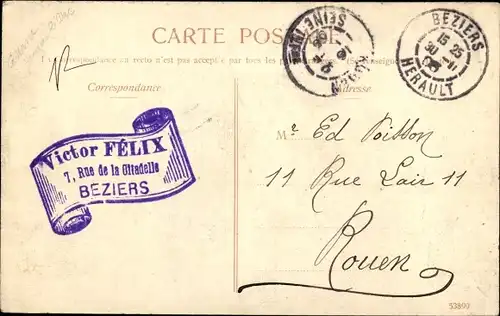 CARTE POSTALE
La Correspondance au recto n'est pas acceptée par tous les pays étrangers (Se renseigner
Correspondance
Adresse
Victor FÉLIX
7, Rue de la Citadelle
BEZIERS
BEZIERS
15 25
30 11
HERAULT
ROUEN
SEINE INF
M.r Ed Poisson
11 Rue Lair 11
Rouen
53899